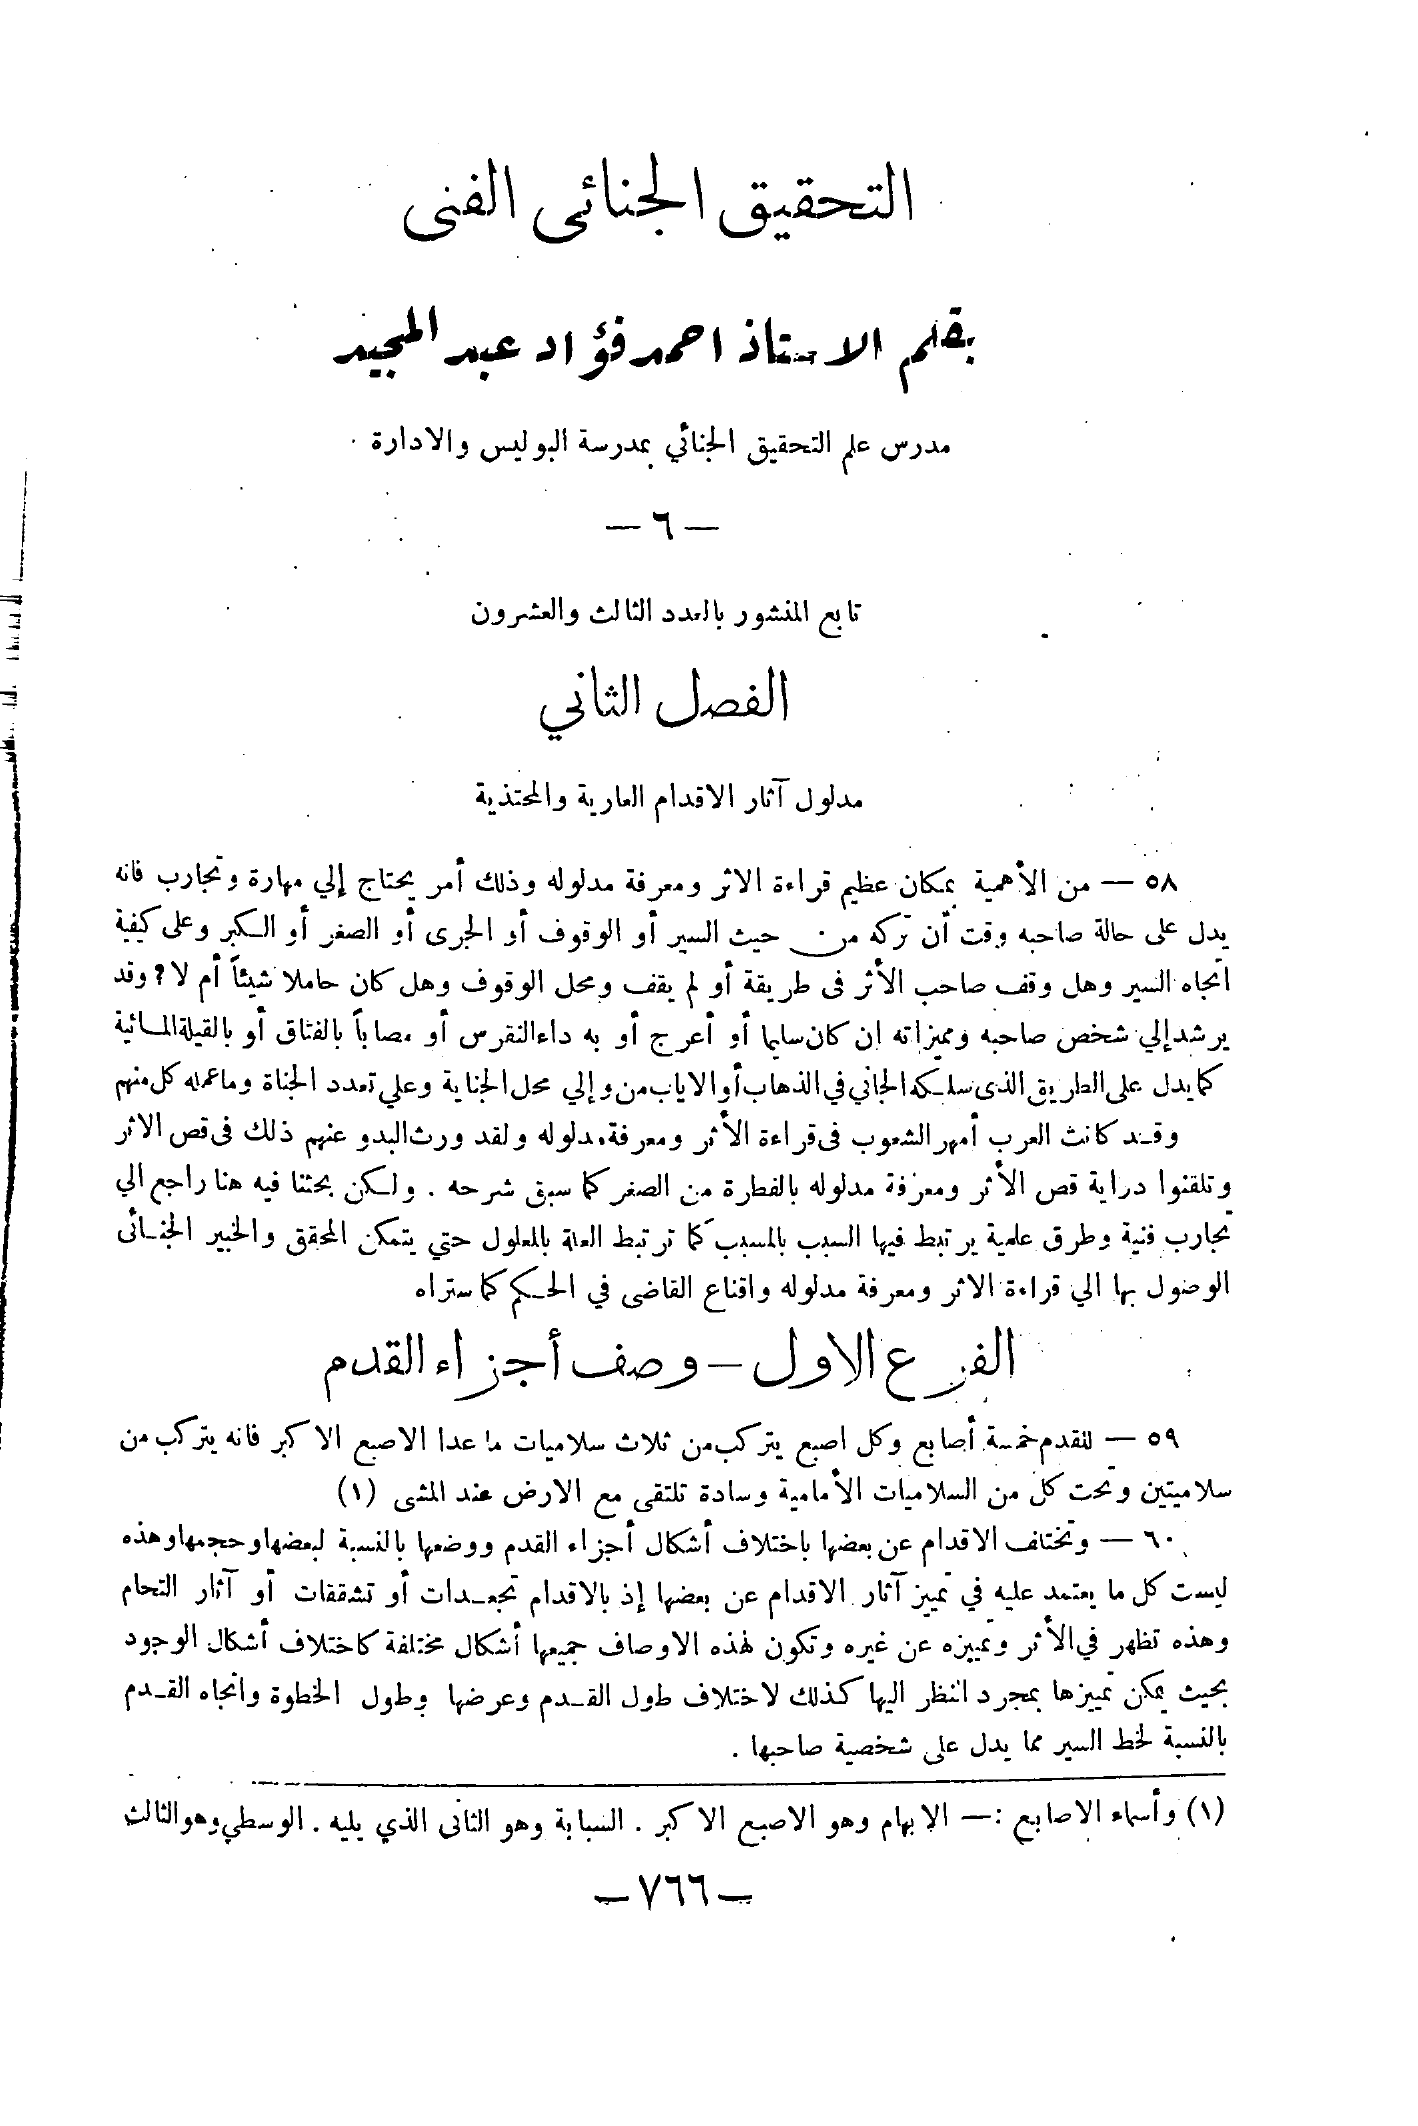 التحقيق الجنائى الفنى
بقلم الاستاذ احمد فؤاد عبد المجيد
مدرس علم التحقيق الجنائي بمدرسة البوليس والادارة
— ٦ —
تابع المنشور بالعدد الثالث والعشرون
الفصل الثاني
مدلول آثار الاقدام العارية والمحتذية
٥٨ — من الأهمية بمكان عظيم قراءة الاثر ومعرفة مدلوله وذلك أمر يحتاج إلي مهارة وتجارب فانه
يدل على حالة صاحبه وقت أن تركه من حيث السير أو الوقوف أو الجرى أو الصغر أو الكبر وعلى كيفية
اتجاه السير وهل وقف صاحب الأثر فى طريقة أو لم يقف ومحل الوقوف وهل كان حاملا شيئاً أم لا ? وقد
يرشد إلي شخص صاحبه ومميزاته ان كان سليما أو أعرج أو به داء النقرس أو مصاباً بالفتاق أو بالقيلة المائية
كما يدل على الطريق الذى سلكه الجاني في الذهاب أو الاياب من وإلي محل الجناية وعلي تعدد الجناة وما عمله كل منهم
وقد كانت العرب أمهر الشعوب فى قراءة الأثر ومعرفة مدلوله ولقد ورث البدو عنهم ذلك فى قص الاثر
وتلقنوا دراية قص الأثر ومعرفة مدلوله بالفطرة من الصغر كما سبق شرحه . ولكن بحثنا فيه هنا راجع الي
تجارب فنية وطرق علمية يرتبط فيها السبب بالمسبب كما ترتبط العلة بالمعلول حتي يتمكن المحقق والخبير الجنائى
الوصول بها الي قراءة الاثر ومعرفة مدلوله واقناع القاضى في الحكم كما ستراه
الفرع الاول — وصف أجزاء القدم
٥٩ — للقدم خمسة أصابع وكل اصبع يتركب من ثلاث سلاميات ما عدا الاصبع الاكبر فانه يتركب من
سلاميتين وتحت كل من السلاميات الأمامية وسادة تلتقى مع الارض عند المشى (١)
٦٠ — وتختلف الاقدام عن بعضها باختلاف أشكال أجزاء القدم ووضعها بالنسبة لبعضها وحجمها وهذه
ليست كل ما يعتمد عليه في تمييز آثار الاقدام عن بعضها إذ بالاقدام تجعدات أو تشققات أو آثار التحام
وهذه تظهر في الأثر وتميزه عن غيره وتكون لهذه الاوصاف جميعها أشكال مختلفة كاختلاف أشكال الوجود
بحيث يمكن تمييزها بمجرد النظر اليها كذلك لاختلاف طول القدم وعرضها وطول الخطوة واتجاه القدم
بالنسبة لخط السير مما يدل على شخصية صاحبها .
(١) وأسماء الاصابع :— الابهام وهو الاصبع الاكبر . السبابة وهو الثانى الذي يليه . الوسطي وهو الثالث
— ٧٦٦ —